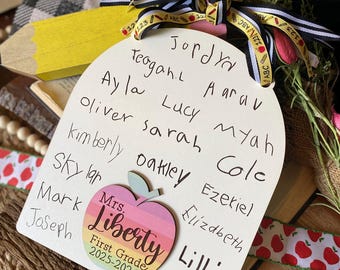 Jordyn
Teagahl Aarav
Ayla Lucy Myah
Oliver Sarah Cole
Kimberly Oakley
Skylar Ezekiel
Mark Elizabeth
Joseph
Mrs.
Liberty
First Grade
2025-202
ABC